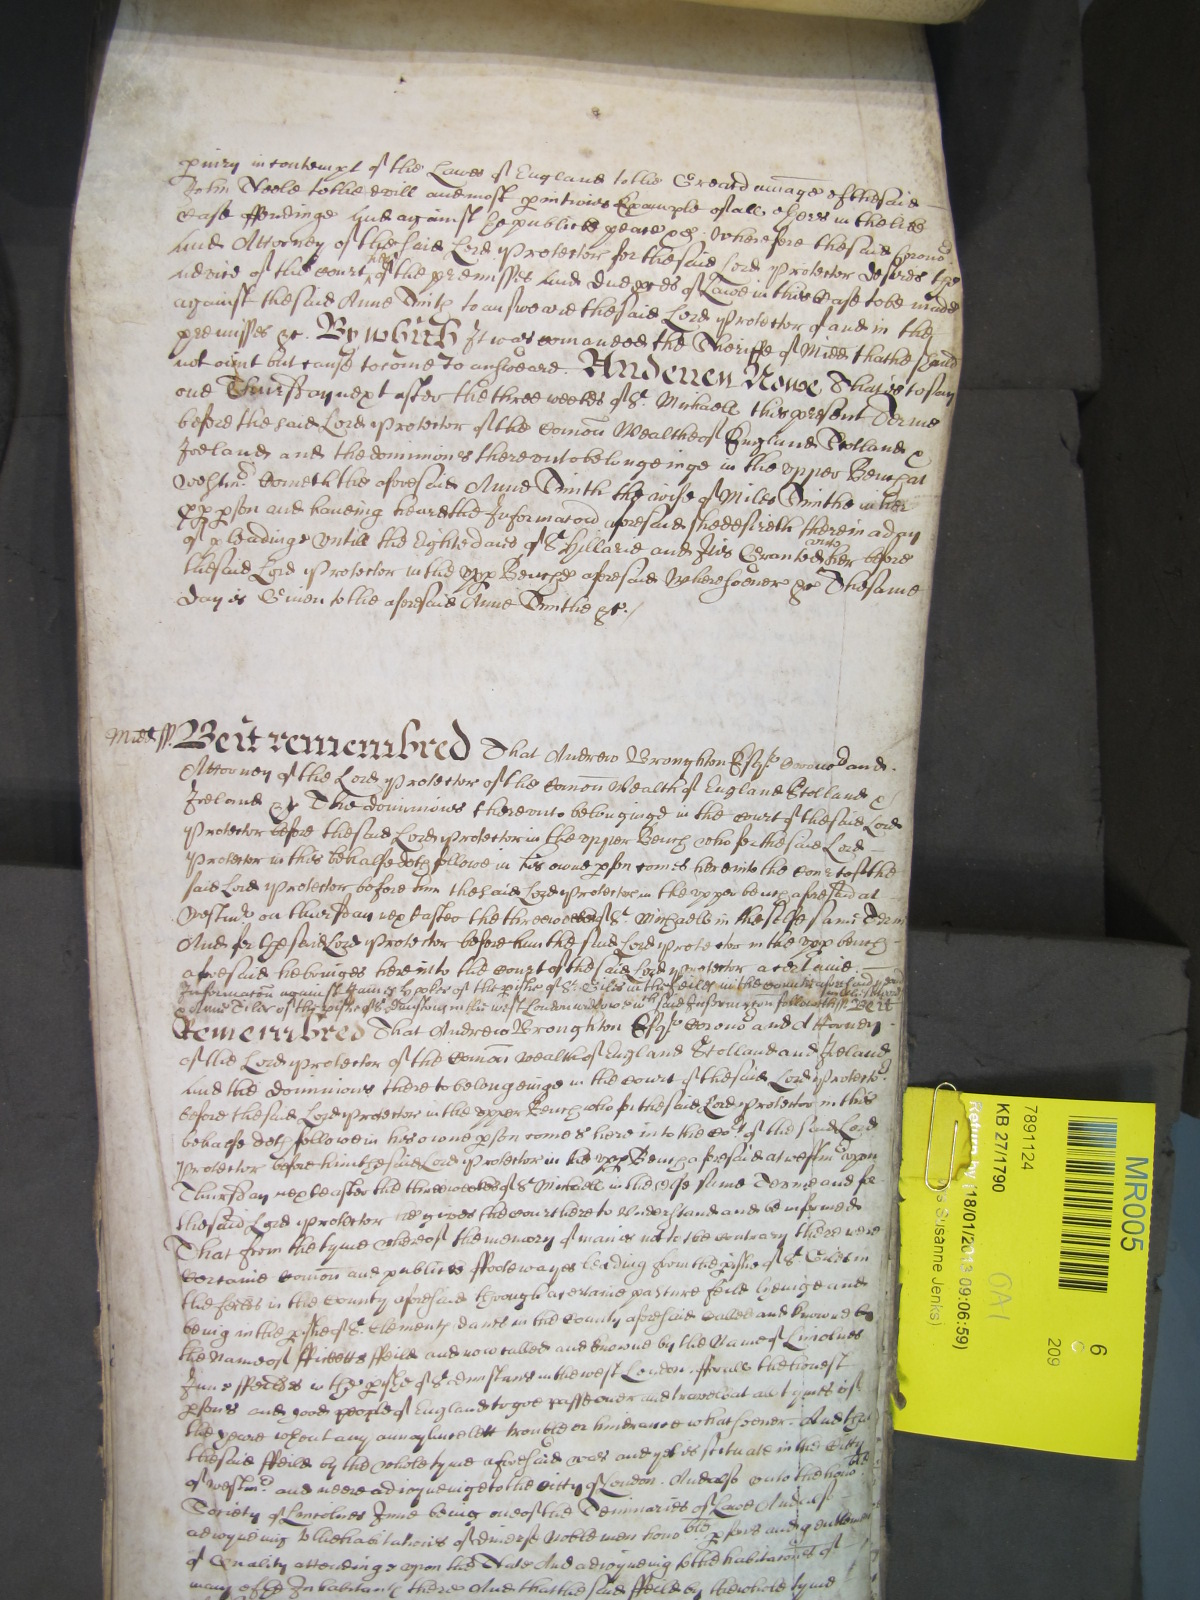 in contempt of the Lawes of England to the Greate damage of the said
John Neele to the evill and most pernitious Example of all others in the like
case offendinge And against the publicke peace &c. Wherefore the said Corono.r
And Attorney of the said Lord Protector for the said Lord Protector desires the
advice of the Court of the premisses And due of Lawe in this Case to be made
against the said Anne Smith to answeare the said Lord Protector of and in the
premisses &c. By which It was comanded the Sheriffe of Midd that he should
not omitt but cause to come to answeare. And even Nowe That is to say
one Thursday next after the three weekes of St. Michaell this present Terme
before the said Lord Protector of the Comon Wealth of England Scotland &
Ireland and the dominions thereunto belongeinge in the upper Bench at
Westm.r Cometh the aforesaid Anne Smith the wife of Miles Smithe in her
pp pson and haveing heard the Informacon aforesaid she desireth therein a day
of pleadinge untill the Eight daies of St. Hillarie and It is Granted her unto before
the said Lord Protector in the upp Bench aforesaid Wheresoever &c The same
day is Given to the aforesaid Anne Smithe &c./
Midd ss. Be it remembred That Andrew Broughton Esq.r Corono.r and
Attorney of the Lord Protector of the Comon Wealth of England Scotland &
Ireland & The dominions thereunto belonginge in the Court of the said Lord
Protector before the said Lord Protector in the upper Bench who for the said Lord
Protector in this behalfe doth followe in his owne pson comes here into the Court of the
said Lord Protector before him the said Lord Protector in the upper bench aforesaid at
Westm.r on Thursday next after the three weekes of St. Michaell in the selfe same Terme
And for the said Lord Protector before him the said Lord Protector in the upp bench
aforesaid he bringes here into the Court of the said Lord Protector a certaine
Informaton against James Hooler of the pishe of St. Giles in the feilds in the County aforesaid
of the pishe of St. Dunstons in the West London Be it
Remembred That Andrew Broughton Esq.r Corono.r and Attorney
of the Lord Protector of the Comon Wealth of England Scotland and Ireland
And the Dominions there to belongeinge in the Court of the said Lord Protecto.r
before the said Lord Protector in the upper Bench who for the said Lord Protector in this
behalfe doth followe in his owne pson comes here into the Co.rt of the said Lord
Protector before him the said Lord Protector in the upp Bench aforesaid at Westm.r upon
Thursday next after the three weekes of St. Michaell in the selfe same Terme and for
the said Lord Protector gives the Court here to Understand and be informed
That from the tyme whereof the memory of man is not to the contrary there were
Certaine Comon and publicke ffoote wayes leading from the pishe of St. Giles in
the feilds in the County aforesaid through a certaine pasture feild lyeinge and
being in the pishe of St. Clement danes in the County aforesaid Called and knowne by
the Name of Ficketts Feild and now called and knowne by the Name of Lincolnes
Inne Feilds to the pishe of St. Dunstans in the west London. for all the honest
psons and good people of England to goe passe over and travell at all tymes of
the yeare without any annoyance lett trouble or hinderance whatsoever. And that
the said Feild by the whole tyme aforesaid was and yet is scituate in the Citty
of Westm.r and neere adioyneinge to the Citty of London. And also unto the hono.ble
Society of Lincolnes Inne being one of the Seminaries of Lawe And also
adioyneing to the habitations of diverse Noble men hono.ble psons and gentlemen
of Quality attendinge upon the State And adioyneing to the habitacons of
many of the Inhabitants there And that the said Feild by the whole tyme
MR005
7891124
KB 27/1790
Return by (18/01/2013 09:06:59)
Susanne Jenks)
OA1
6
209